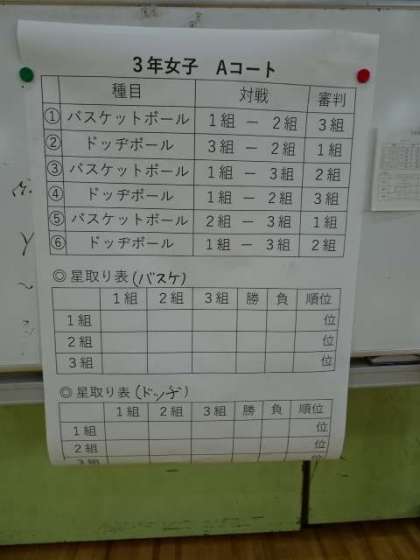 3年女子 Aコート
種目 対戦 審判
① バスケットボール 1組 － 2組 3組
② ドッヂボール 3組 － 2組 1組
③ バスケットボール 1組 － 3組 2組
④ ドッヂボール 1組 － 2組 3組
⑤ バスケットボール 2組 － 3組 1組
⑥ ドッヂボール 1組 － 3組 2組
◎星取り表(バスケ)
1組 2組 3組 勝 負 順位
1組 位
2組 位
3組 位
◎星取り表(ドッヂ)
1組 2組 3組 勝 負 順位
1組 位
2組 位
3組 位